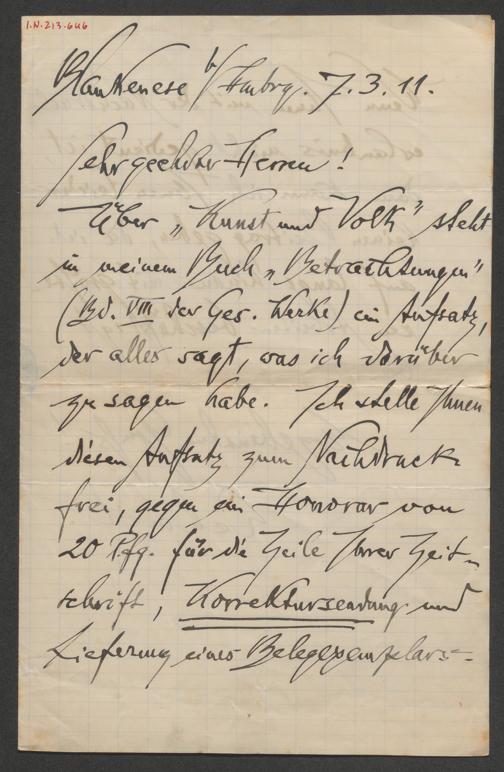 I.N. 213.646
Blankenese b/ Hmbrg. 7.3.11.
Sehr geehrter Herren!
Über „Kunst und Volk" steht
in meinem Buch „Betrachtungen"
(Bd. VIII der Ges. Werke) ein Aufsatz,
der alles sagt, was ich darüber
zu sagen habe. Ich stelle Ihnen
diesen Aufsatz zum Nachdruck
frei, gegen ein Honorar von
20 Pfg. für die Zeile Ihrer Zeit-
schrift, Korrektursendung und
Lieferung eines Belegexemplars.